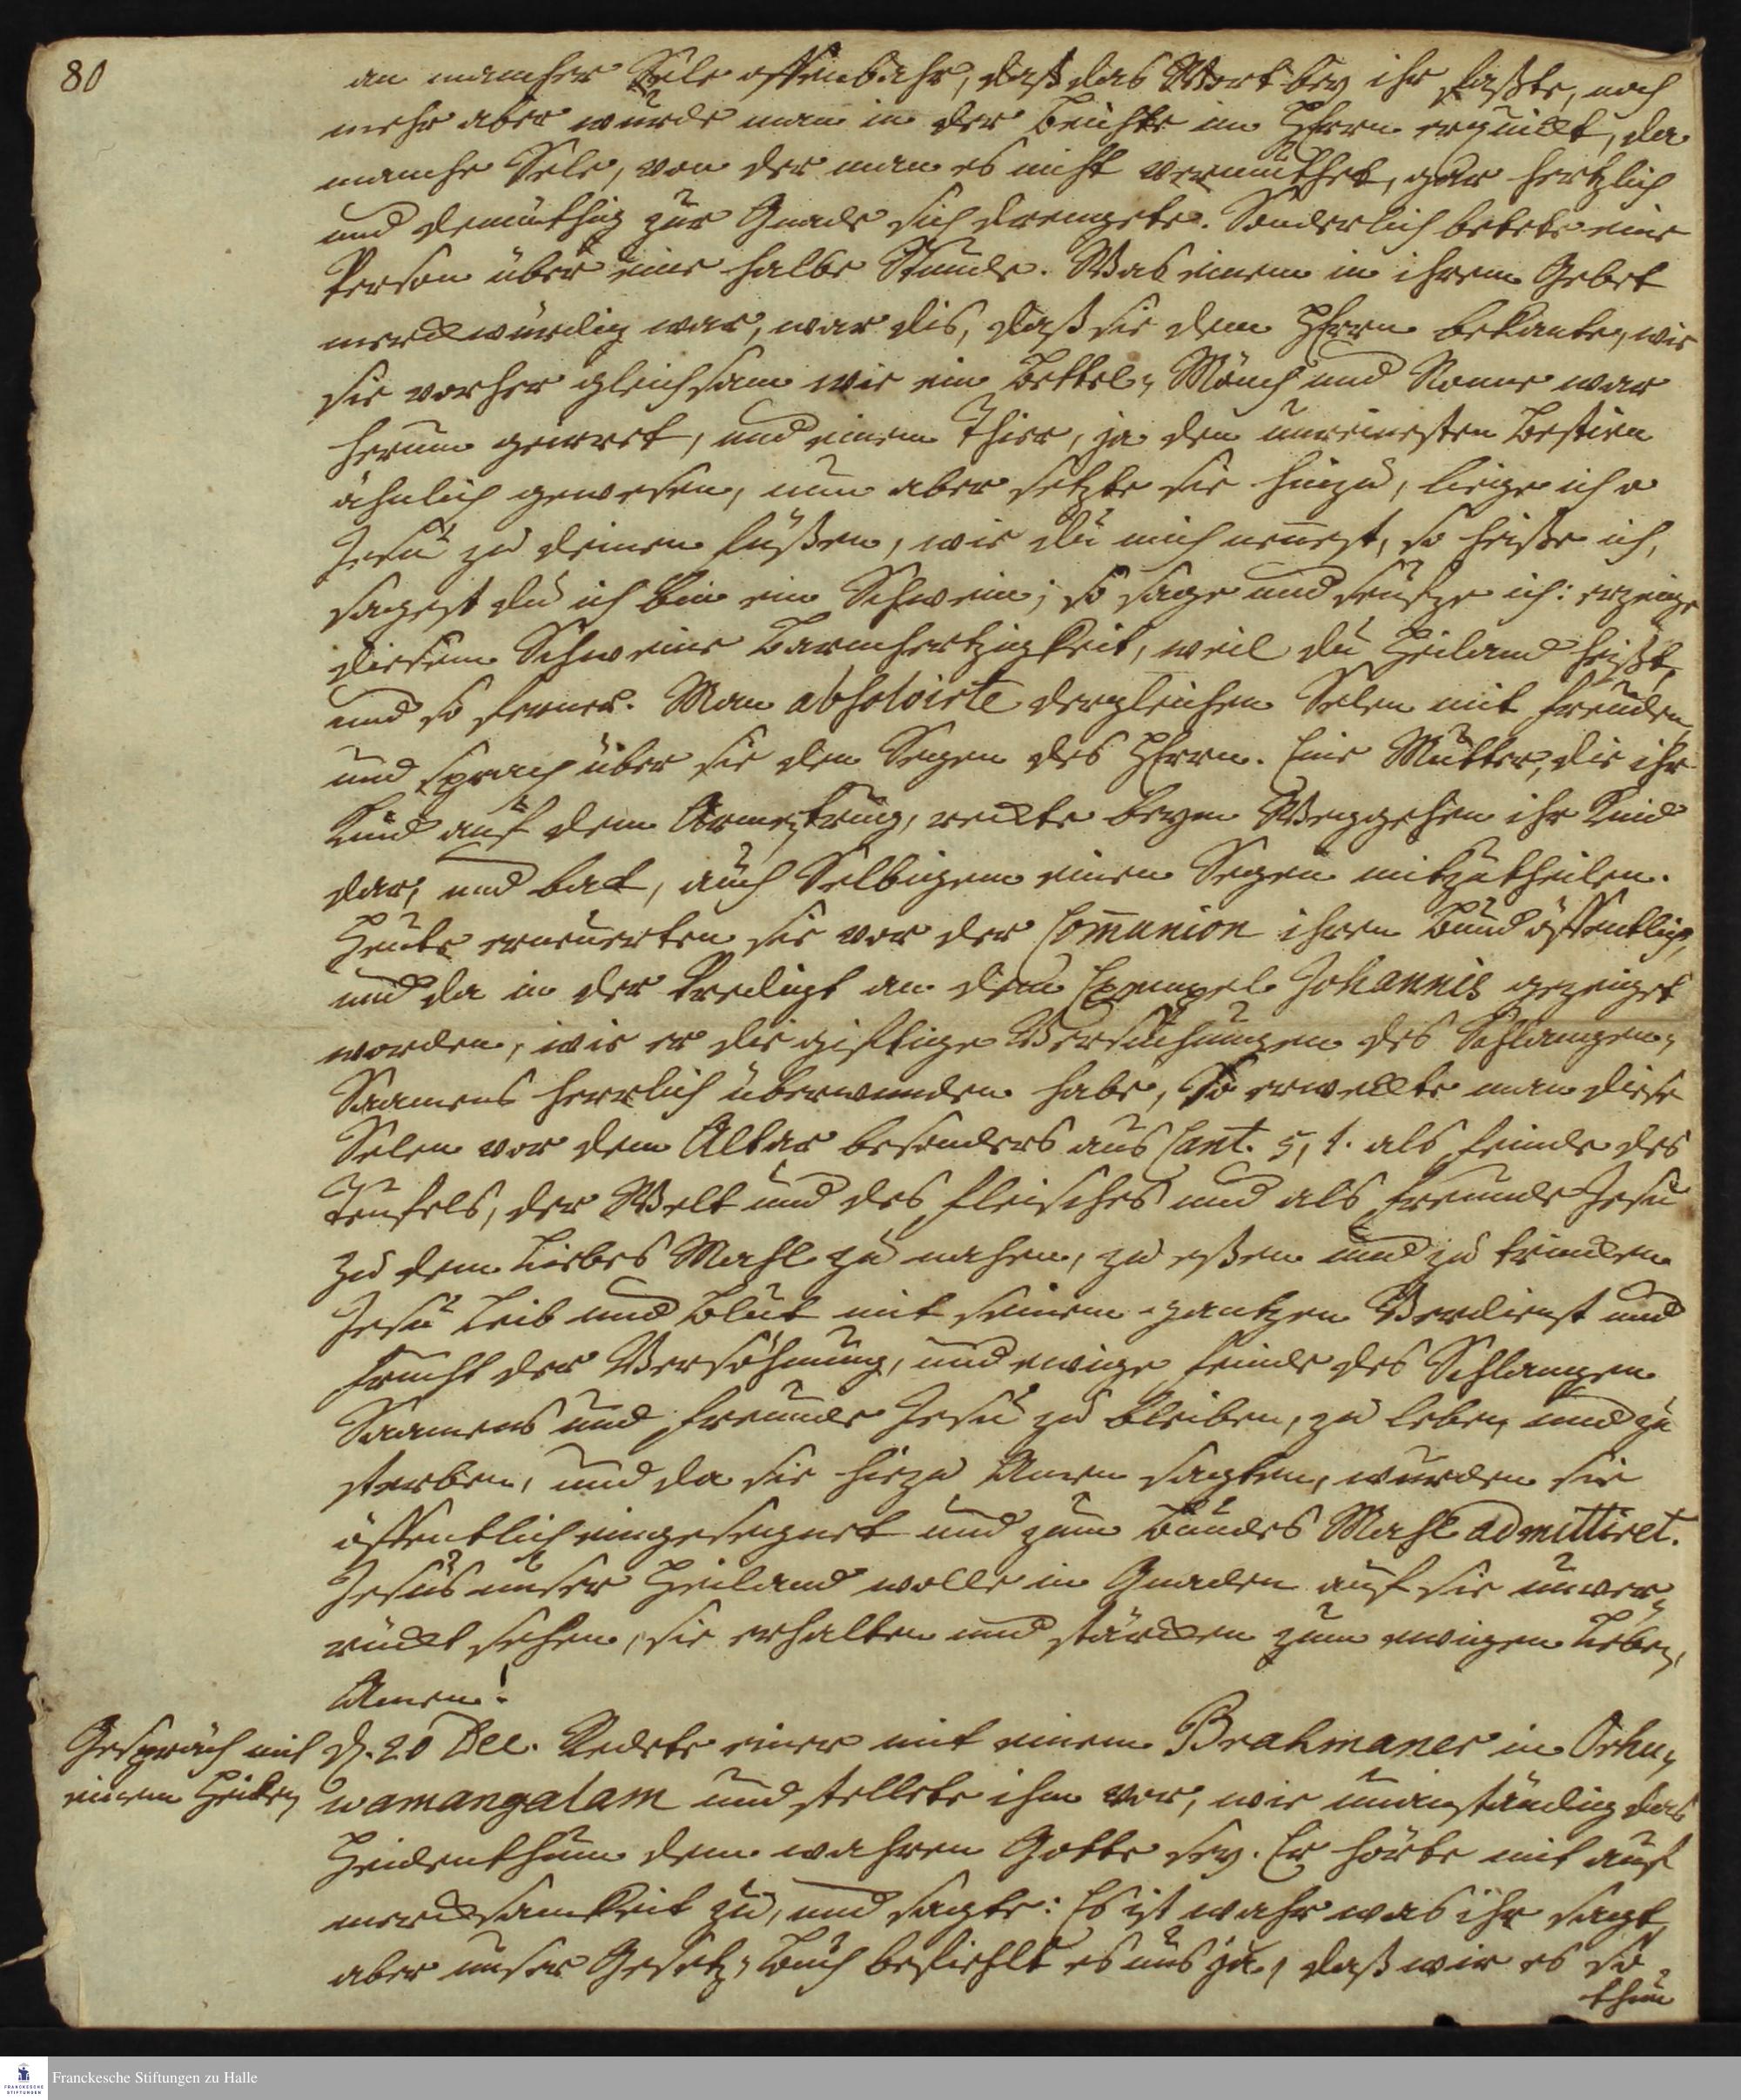 80
an mancher Sele offenbahr, daß das Wort bey ihr faßte, noch
mehr aber wurde man in der Beichte im HErrn erquickt, da
manche Sele, von der man es nicht vermuthet, gar hertzlich
und demüthig zur Gnade sich drengete. Sonderlich betete eine
Person über eine halbe Stunde. Was einem in ihrem Gebet
merckwürdig war, war dis, daß sie dem HErrn bekante, wie
sie vorher gleichsam wie ein Bettel-Mönch und Nonne war
herum geirret, und einem Thier, ja den unreinesten Bestien
ähnlich gewesen, nun aber setzte sie hinzu, liege ich o
Jesu zu deinen Füßen, wie du mich nennest, so heiße ich,
sagest du ich bin ein Schwein; so sage und seufze ich: erzeige
diesem Schweine Barmhertzigkeit, weil du Heiland heißt,
und so ferner. Man absolvirte dergleichen Selen mit Freuden,
und sprach über sie den Segen des HErrn. Eine Mutter, die ihr
Kind auf dem Arme trug, reckte beym Weggehen ihr Kind
dar, und bat, auch Selbigem einen Segen mitzutheilen.
Heute erneuerten sie vor der Communion ihren Bund öffentlich,
und da in der Predigt an dem Exempel Johannis gezeiget
worden, wie er die giftige Versuchungen des Schlangen-
Saamens herrlich überwunden habe, so erweckte man diese
Selen vor dem Altar besonders aus Cant. 5, 1. als Feinde des
Teufels, der Welt und des Fleisches und als Freunde Jesu
zu dem Liebes Mahl zu nahen, zu eßen und zu trincken
Jesu Leib und Blut mit seinem gantzen Verdienst und
Frucht der Versöhnung, und ewige Feinde des Schlangen
Saamens und Freunde Jesu zu bleiben, zu leben, und zu
sterben, und da sie hiezu Amen sagten, wurden sie
öffentlich eingesegnet und zum Bundes Mahl admittiret.
Jesus unser Heiland wolle in Gnaden auf sie unver-
rückt sehen, sie erhalten und stärcken zum ewigen Leben,
Amen!
Gespräch mit
einem Heiden
d. 20 Dec. Redete einer mit einem Brahmaner in Orhu-
wamangalam und stellete ihm vor, wie unanständig das
Heidenthum dem wahren Gotte sey. Er hörte mit auf
mercksamkeit zu, und sagte: Es ist wahr was ihr sagt,
aber unser Gesetz-Buch befiehlt es uns ja, daß wir es so
thun
Franckesche Stiftungen zu Halle
FRANCKESCHE
STIFTUNGEN